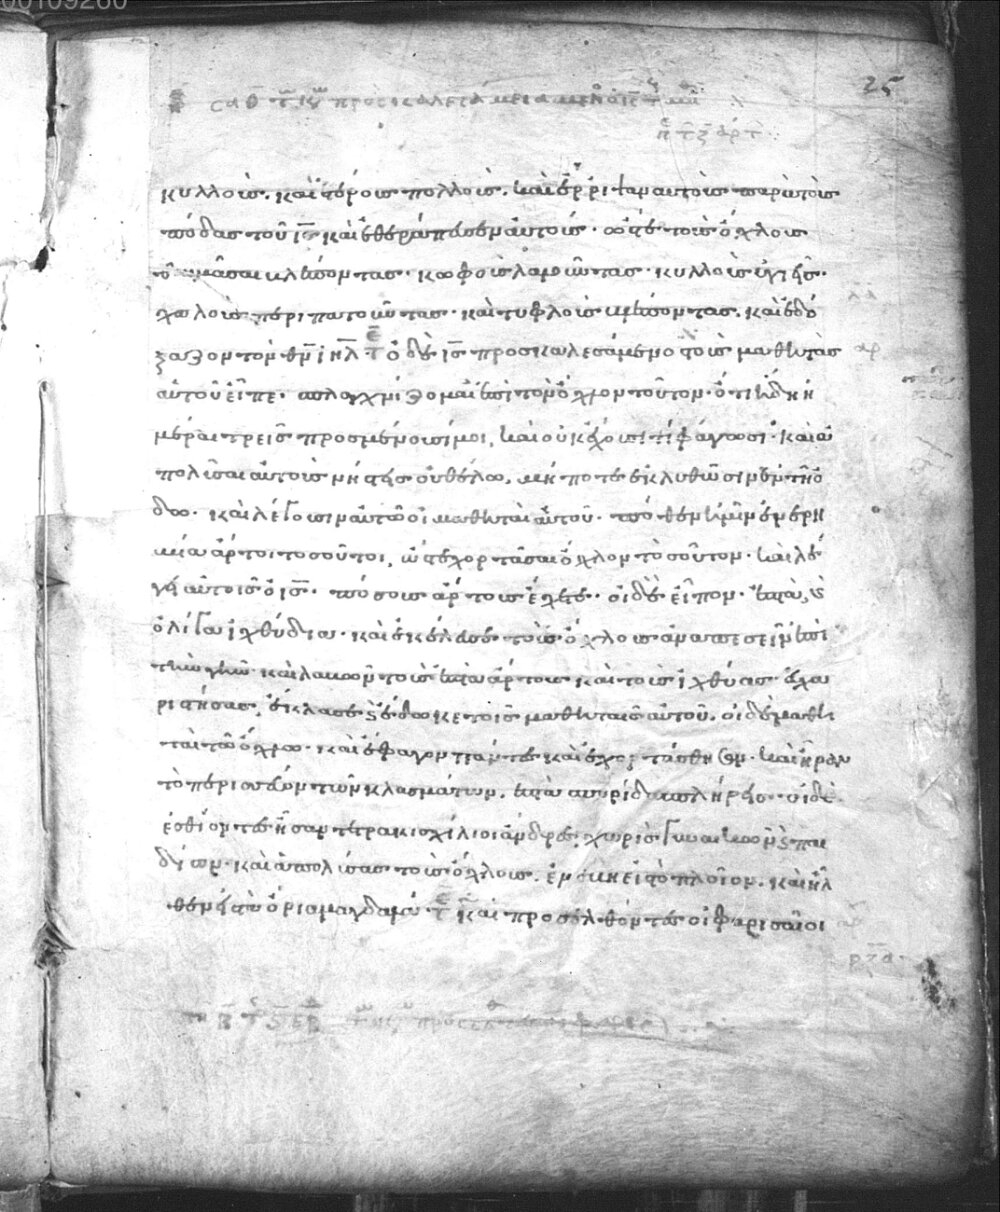 25
κυλλοὺς. καὶ ἑτέρους πολλοὺς. καὶ ἔρριψαν αὐτοὺς παρὰ τοὺς
πόδας τοῦ ι̅υ̅ καὶ ἐθεράπευσεν αὐτούς· ὥστε τοὺς ὄχλους
θαυμᾶσαι βλέποντας· κωφοὺς λαλοῦντας· κυλλοὺς ὑγιεῖς·
χωλοὺς περιπατοῦντας· καὶ τυφλοὺς βλέποντας. καὶ ἐδό
ξαζον τὸν θ̅ν̅ ι̅η̅λ̅ ὁ δὲ ι̅ς̅ προσκαλεσάμενος τοὺς μαθητὰς
αὐτοῦ εἶπε· σπλαγχνίζομαι ἐπὶ τὸν ὄχλον τοῦτον· ὅτι ἤδη ἡ
μέραι τρεῖς προσμένουσί μοι, καὶ οὐκ ἔχουσι τί φάγωσι· καὶ ἀ
πολῦσαι αὐτοὺς νήστεις οὐ θέλω, μήποτε ἐκλυθῶσιν ἐν τῇ ὁ
δῶ· καὶ λέγουσιν αὐτῶ οἱ μαθηταὶ αὐτοῦ· πόθεν ἡμῖν ἐν ἐρη
μία ἄρτοι τοσοῦτοι, ὥστε χορτᾶσαι ὄχλον τοσοῦτον· καὶ λέ
γει αὐτοῖς ὁ ι̅ς̅· πόσους ἄρτους ἔχετε· οἱ δὲ εἶπον· ἑπτὰ, ϗ
ὀλίγα ἰχθύδια· καὶ ἐκέλευσε τοῖς ὄχλοις ἀναπεσεῖν ἐπὶ
τὴν γῆν· καὶ λαβὼν τοὺς ἑπτὰ ἄρτους καὶ τοὺς ἰχθύας εὐχα
ριστήσας, ἔκλασε ϗ ἔδωκε τοῖς μαθηταῖς αὐτοῦ. οἱ δὲ μαθη
ταὶ τῶ ὄχλω· καὶ ἔφαγον πάντες καὶ ἐχορτάσθησαν· καὶ ἦραν
τὸ περισσεῦον τῶν κλασμάτων, ἑπτὰ σπυρίδας πλήρεις· οἱ δὲ
ἐσθίοντες ἦσαν τετρακισχίλιοι ἄνδρες χωρὶς γυναικῶν ϗ παι
δίων· καὶ ἀπολύσας τοὺς ὄχλους. ἐνέβη εἰς τὸ πλοῖον. καὶ ἦλ
θεν εἰς τὰ ὅρια μαγδαλά· καὶ προσελθόντες οἱ φαρισαῖοι